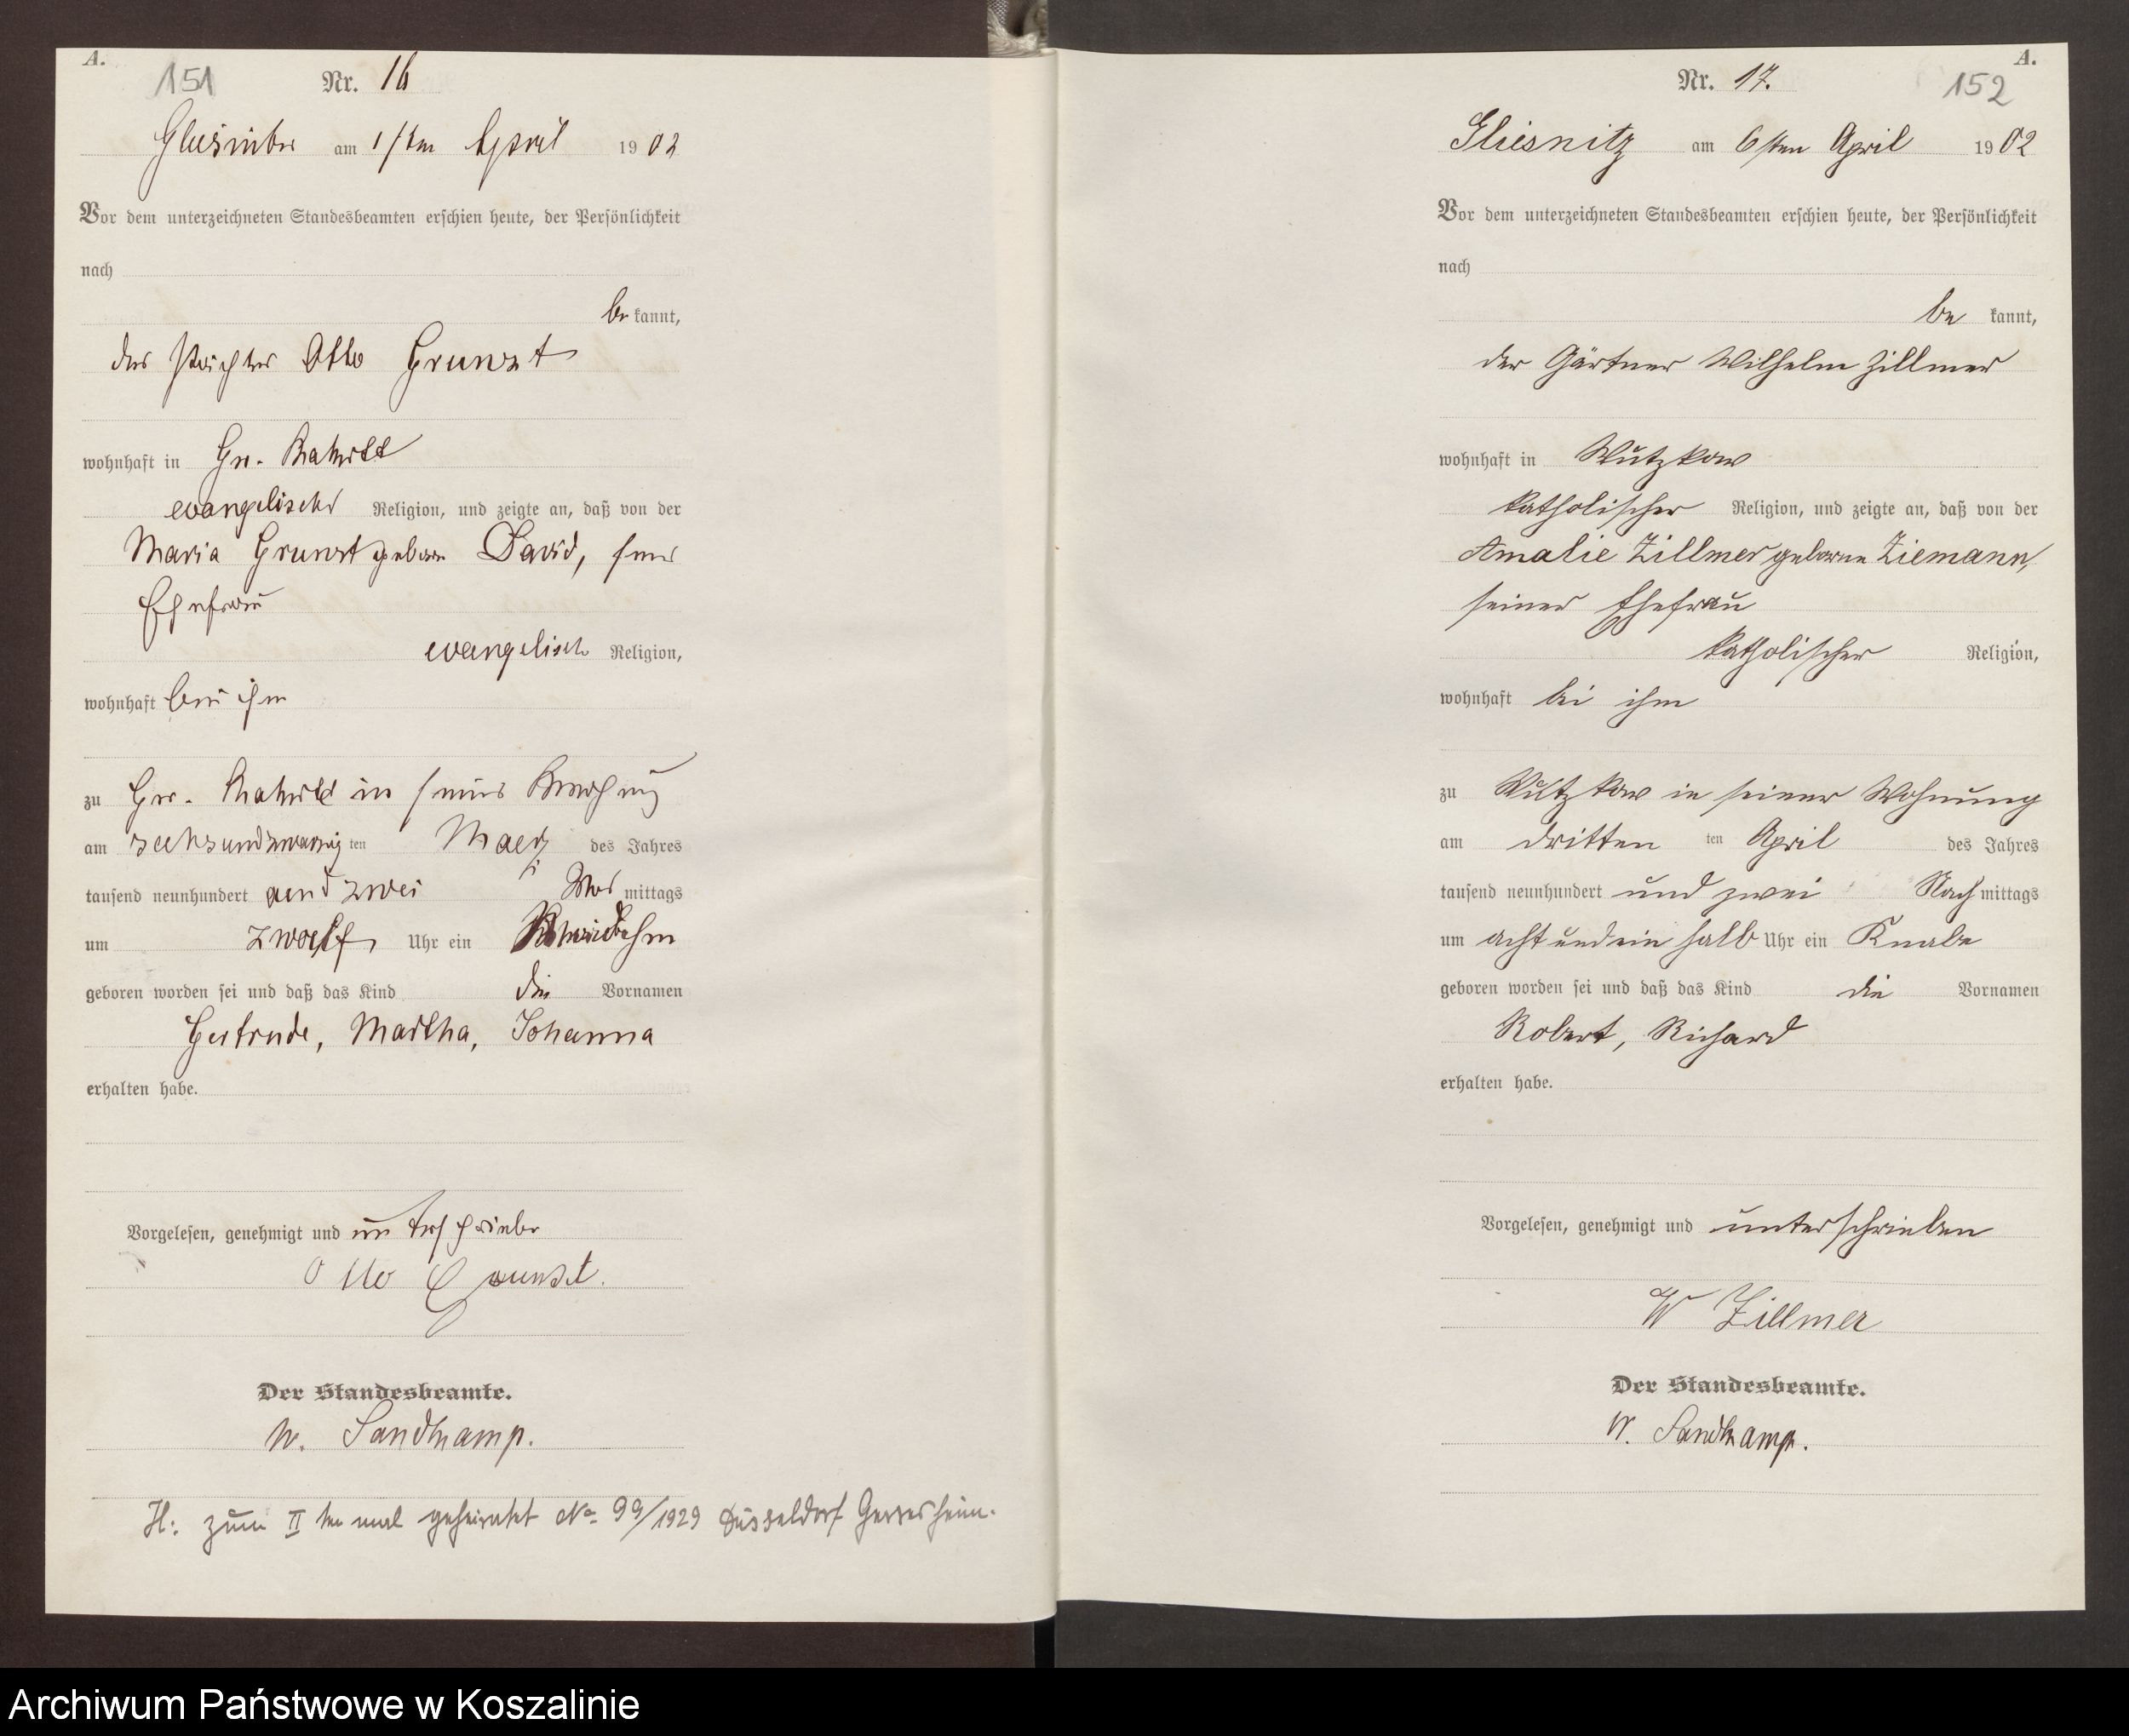 A.
151
Nr. 16
am 1sten April 1902
Vor dem unterzeichneten Standesbeamten erschien heute, der Persönlichkeit
nach
be kannt,
der Otto Grunst
wohnhaft in Gr.
evangelischer Religion, und zeigte an, daß von der
Maria Grunst geborne David, seiner
Ehefrau
evangelisch Religion,
wohnhaft bei ihm
zu Gr. in seiner
am sechsundzwanzig ten Maerz des Jahres
tausend neunhundert und zwei Vor mittags
um zwoelf Uhr ein
geboren worden sei und daß das Kind die Vornamen
Gertrude, Martha, Johanna
erhalten habe.
Vorgelesen, genehmigt und unterschrieben
Otto Grunst.
Der Standesbeamte.
W. Sandkamp.
H: zum II ten mal geheiratet No 99/1929 Düsseldorf Gerresheim.
A.
Nr. 17.
152
Gliesnitz am 6ten April 1902
Vor dem unterzeichneten Standesbeamten erschien heute, der Persönlichkeit
nach
be kannt,
der Gärtner Wilhelm Zillmer
wohnhaft in Wutzkow
katholischer Religion, und zeigte an, daß von der
Amalie Zillmer geborne Ziemann,
seiner Ehefrau
katholischer Religion,
wohnhaft bei ihm
zu Wutzkow in seiner Wohnung
am dritten ten April des Jahres
tausend neunhundert und zwei Nach mittags
um acht und ein halb Uhr ein Knabe
geboren worden sei und daß das Kind die Vornamen
Robert, Richard
erhalten habe.
Vorgelesen, genehmigt und unterschrieben
W Zillmer
Der Standesbeamte.
W. Sandkamp.
Archiwum Państwowe w Koszalinie